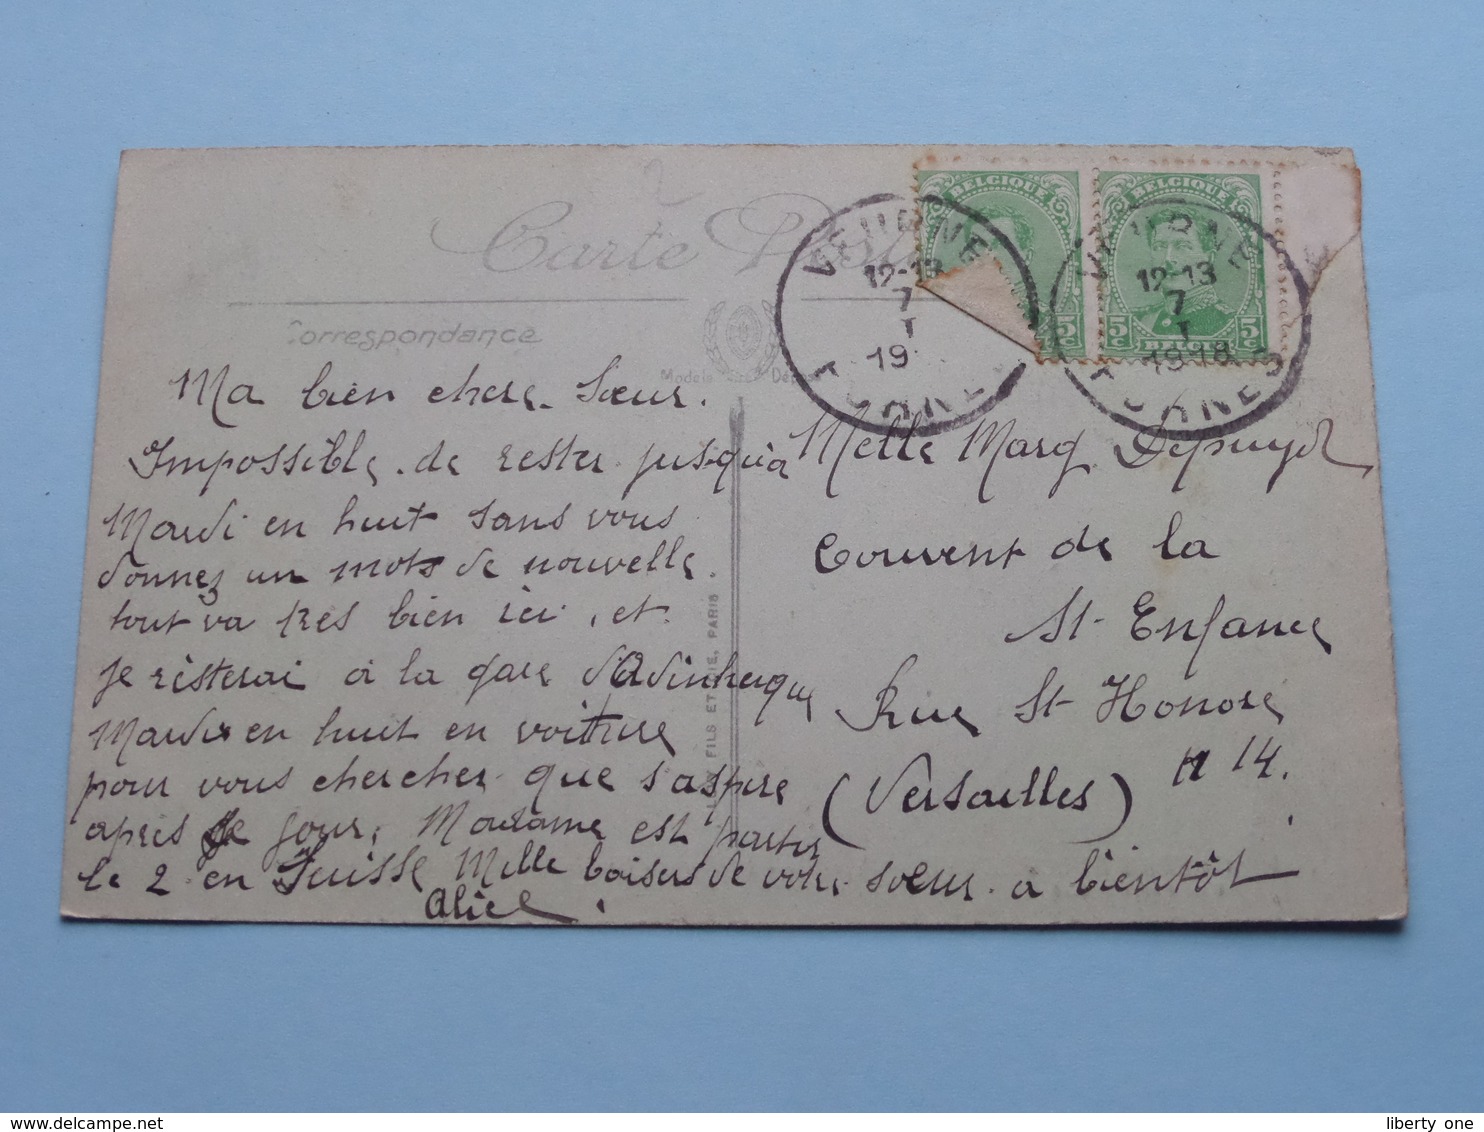 Carte Postale
Correspondance
BELGIQUE
BELGIQUE
5c
5c 5c
BELGIE
VEURNE
12-13
7
I
19
FURNES
VEURNE
12-13
7
I
1918
FURNES
Ma bien chere Sœur.
Impossible de rester jusqu'à
Mardi en huit sans vous
donnez un mots de nouvelle
tout va tres bien ici, et
je resterai à la gare d'Adinkerque
Mardi en huit en voiture
pour vous chercher que s'aspire
après ce jour, Madame est partis
le 2 en Suisse Mille baisers de votre soeur a bientôt
Alice
FILS ET CIE, PARIS.
Melle Marg. Depuydt
Couvent de la
St- Enfance
Rue St Honore
n 14.
(Versailles)
liberty one